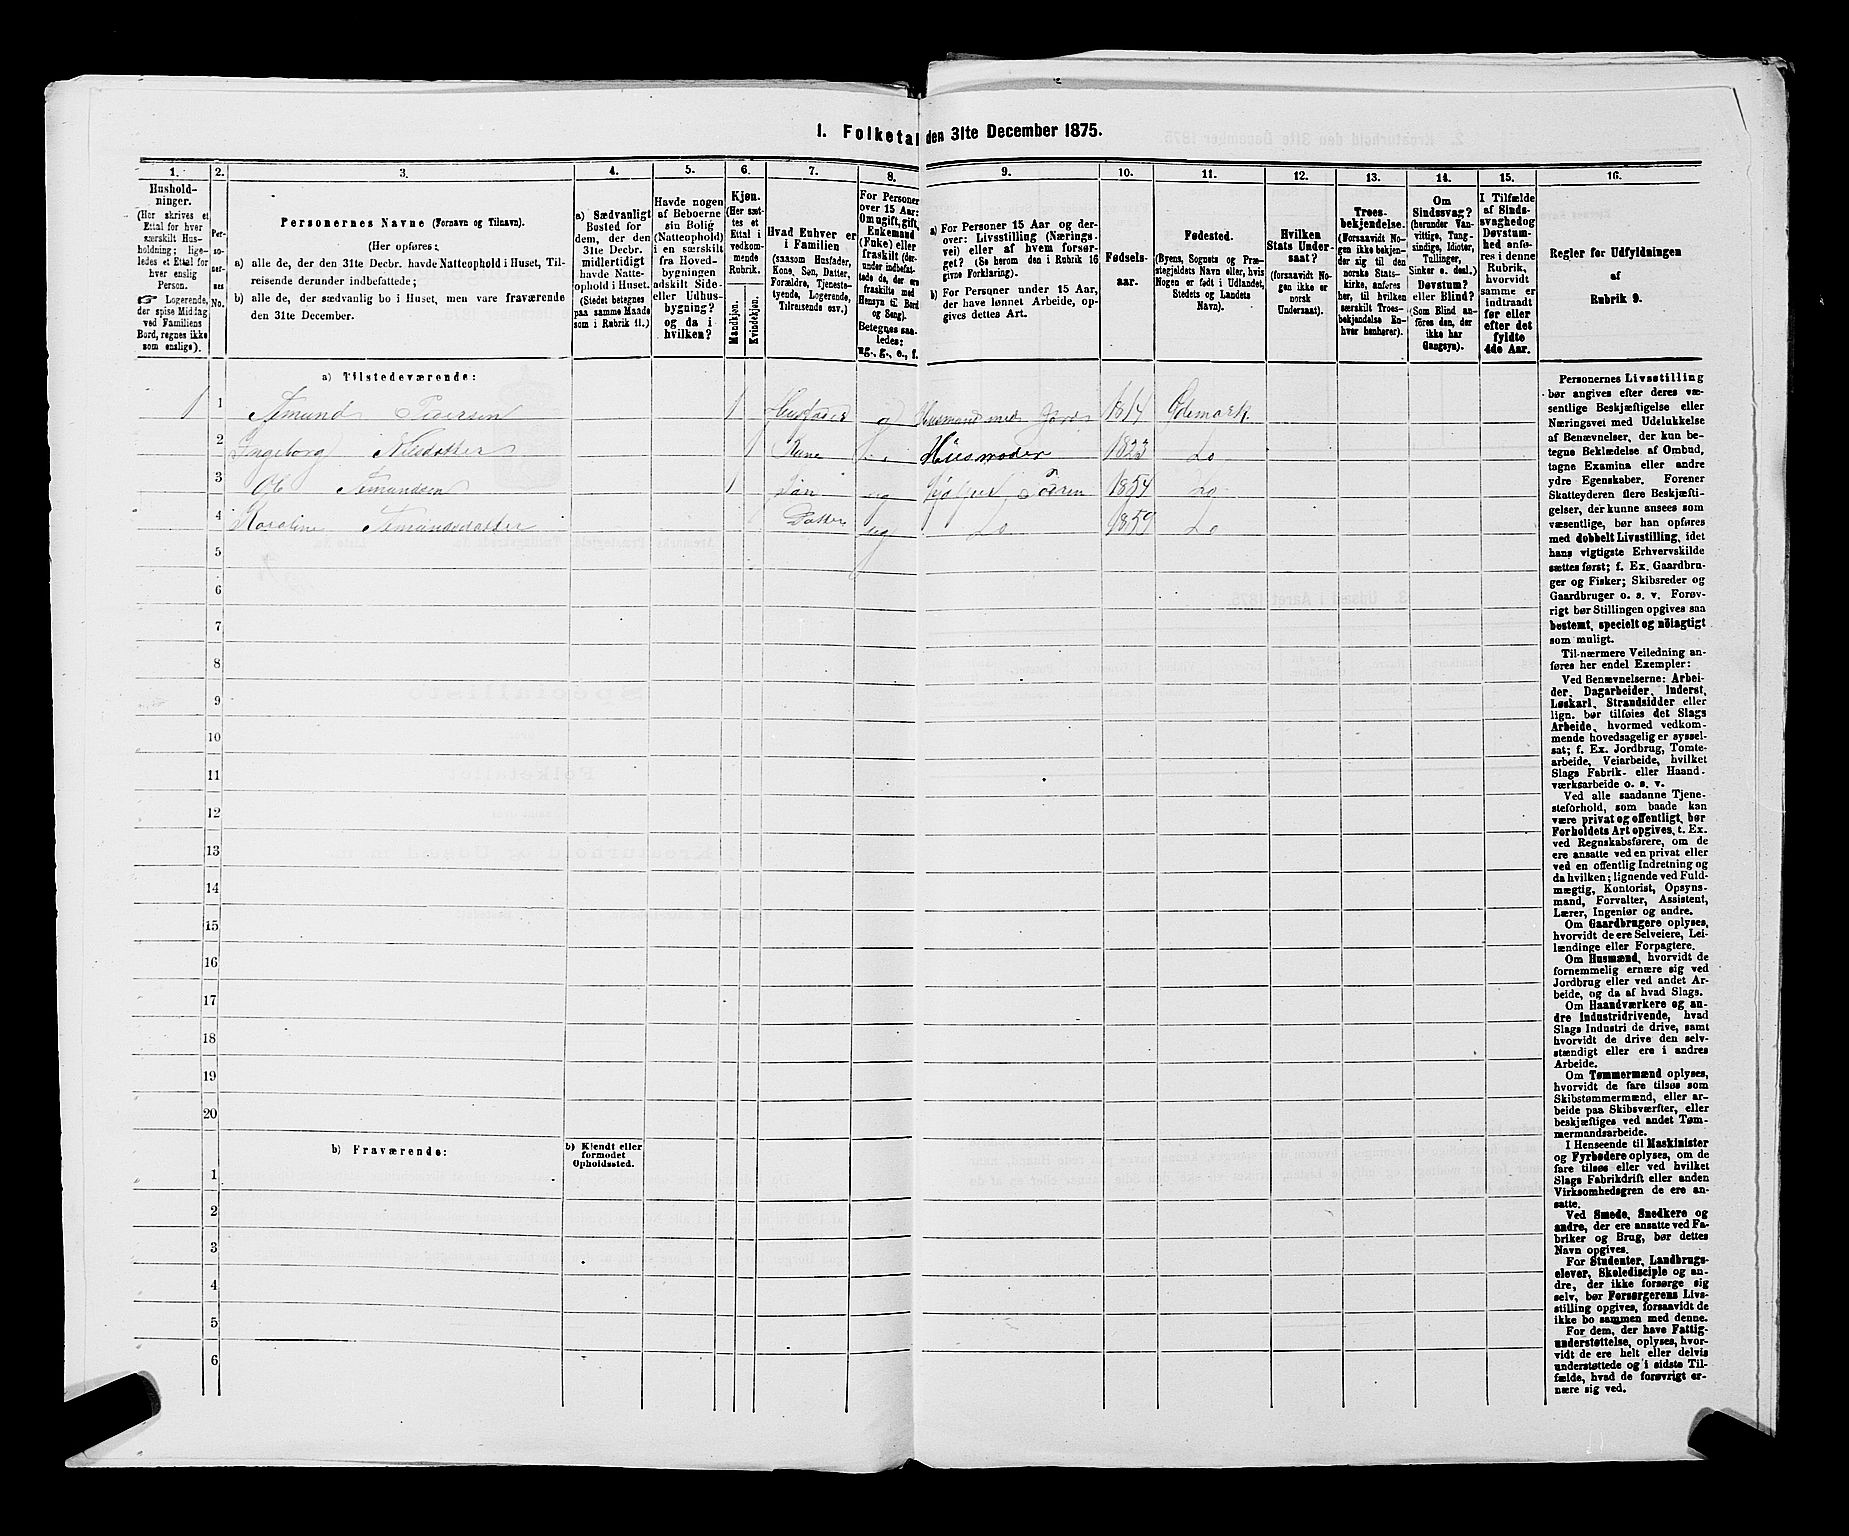 1. Folketal den 31te December 1875.
1.
Hushold-
ninger.
(Her skrives et
Ettal for hver
særskilt Hus-
holdning; lige-
ledes et Ettal for
hver enslig
Person.
☞ Logerende,
der spise Middag
ved Familiens
Bord, regnes ikke
som enslige).
2.
Per-
so-
ner-
nes
No.
3.
Personernes Navne (Fornavn og Tilnavn).
(Her opføres:
a) alle de, der den 31te Decbr. havde Natteophold i Huset, Til-
reisende derunder indbefattede;
b) alle de, der sædvanlig bo i Huset, men vare fraværende
den 31te December.
4.
a) Sædvanligt
Bosted for
dem, der den
31te Decbr.
midlertidigt
havde Natte-
ophold i Huset.
(Stedet betegnes
paa samme Maade
som i Rubrik 11.)
5.
Havde nogen
af Beboerne
sin Bolig
(Natteophold)
i en særskilt
fra Hoved-
bygningen
adskilt Side-
eller Udhus-
bygning?
og da i
hvilken?
6.
Kjøn.
(Her sæt-
tes et
Ettal i
vedkom-
mende
Rubrik.
Mandkjøn.
Kvindekjøn.
7.
Hvad Enhver er
i Familien
(saasom Husfader,
Kone, Søn, Datter,
Forældre, Tjeneste-
tyende, Logerende,
Tilreisende osv.)
8.
For Personer
over 15 Aar:
Om ugift, gift,
Enkemand
(Enke) eller
fraskilt (der-
under indbefat-
tede de, der ere
fraskilte med
Hensyn til Bord
og Seng).
Betegnes saa-
ledes:
ug., g., e., f.
9.
a) For Personer 15 Aar og der-
over: Livsstilling (Nærings-
vei) eller af hvem forsør-
get? (Se herom den i Rubrik 16
givne Forklaring).
b) For Personer under 15 Aar,
der have lønnet Arbeide, op-
gives dettes Art.
10.
Fødsels-
aar.
11.
Fødested.
(Byens, Sognets og Præ-
stegjeldets Navn eller, hvis
Nogen er født i Udlandet,
Stedets og Landets
Navn).
12.
Hvilken
Stats Under-
saat?
(forsaavidt No-
gen ikke er
norsk
Undersaat).
13.
Troes-
bekjendelse.
(Forsaavidt No-
gen ikke bekjen-
der sig til den
norske Stats-
kirke, anføres
her, til hvilken
særskilt Troes-
bekjendelse En-
hver henhører).
14.
Om
Sindssvag?
(herunder Van-
vittige, Tung-
sindige, Idioter,
Tullinger,
Sinker o. desl.)
Døvstum?
eller Blind?
(Som Blind an-
føres den, der
ikke har
Gangsyn).
15.
I Tilfælde
af Sinds-
svaghed og
Døvstum-
hed anfø-
res i denne
Rubrik,
hvorvidt
samme er
indtraadt
før eller
efter det
fyldte
4de Aar.
16.
Regler for Udfyldningen
af
Rubrik 9.
a) Tilstedeværende:
1 1 Amund Iversen 1 Husfader g Husmand med Jord 1814 Ødemark
2 Ingeborg Nilsdatter 1 Kone Husmoder 1823 Do
3 Ole Amundsen 1 Søn ug hjelper Faderen 1854 Do
4 Karoline Amundsdatter Datter ug Do 1859 Do
5
6
7
8
9
10
11
12
13
14
15
16
17
18
19
20
b) Fraværende:
b) Kjendt eller
formodet
Opholdssted.
1
2
3
4
5
6
Personernes Livsstilling
bør angives efter deres væ-
sentlige Beskjæftigelse eller
Næringsvei med Udelukkelse
af Benævnelser, der kun be-
tegne Beklædelse af Ombud,
tagne Examina eller andre
ydre Egenskaber. Forener
Skatteyderen flere Beskjæfti-
gelser, der kunne ansees som
væsentlige, bør han opføres
med dobbelt Livsstilling, idet
hans vigtigste Erhvervskilde
sættes først; f. Ex. Gaardbru-
ger og Fisker; Skibsreder og
Gaardbruger o. s. v. Forøv-
rigt bør Stillingen opgives saa
bestemt, specielt og nöiagtigt
som muligt.
Til nærmere Veiledning an-
føres her endel Exempler:
Ved Benævnelserne: Arbei-
der, Dagarbeider, Inderst,
Løskarl, Strandsidder eller
lign. bør tilføies det Slags
Arbeide, hvormed vedkom-
mende hovedsagelig er syssel-
sat; f. Ex. Jordbrug, Tomte-
arbeide, Veiarbeide, hvilket
Slags Fabrik- eller Haand-
værksarbeide o. s. v.
Ved alle saadanne Tjene-
steforhold, som baade kan
være privat og offentligt, bør
Forholdets Art opgives, t. Ex.
ved Regnskabsførere, om de
ere ansatte ved en privat eller
ved en offentlig Indretning og
da hvilken; lignende ved Fuld-
mægtig, Kontorist, Opsyns-
mand, Forvalter, Assistent,
Lærer, Ingeniør og andre.
Om Gaardbrugere oplyses,
hvorvidt de ere Selveiere, Lei-
lændinge eller Forpagtere.
Om Husmænd, hvorvidt de
fornemmelig ernære sig ved
Jordbrug eller ved andet Ar-
beide, og da af hvad Slags.
Om Haandværkere og an-
dre Industridrivende, hvad
Slags Industri de drive, samt
hvorvidt de drive den selv-
stændigt eller ere i andres
Arbeide.
Om Tømmermænd oplyses,
hvorvidt de fare tilsøs som
Skibstømmermænd, eller ar-
beide paa Skibsværfter, eller
beskjæftiges ved andet Tøm-
mermandsarbeide.
I Henseende til Maskinister
og Fyrbødere oplyses, om de
fare tilsøs eller ved hvilket
Slags Fabrikdrift eller anden
Virksomhedsgren de ere an-
satte.
Ved Smede, Snedkere og
andre, der ere ansatte ved Fa-
briker og Brug, bør dettes
Navn opgives.
For Studenter, Landbrugs-
elever, Skoledisciple og an-
dre, der ikke forsørge sig
selv, bør Forsørgerens Livs-
stilling opgives, forsaavidt de
ikke bo sammen med denne.
For dem, der have Fattig-
understøttelse, oplyses, hvor-
vidt de ere helt eller delvis
understøttede og i sidste Til-
fælde, hvad de forøvrigt er-
nære sig ved.